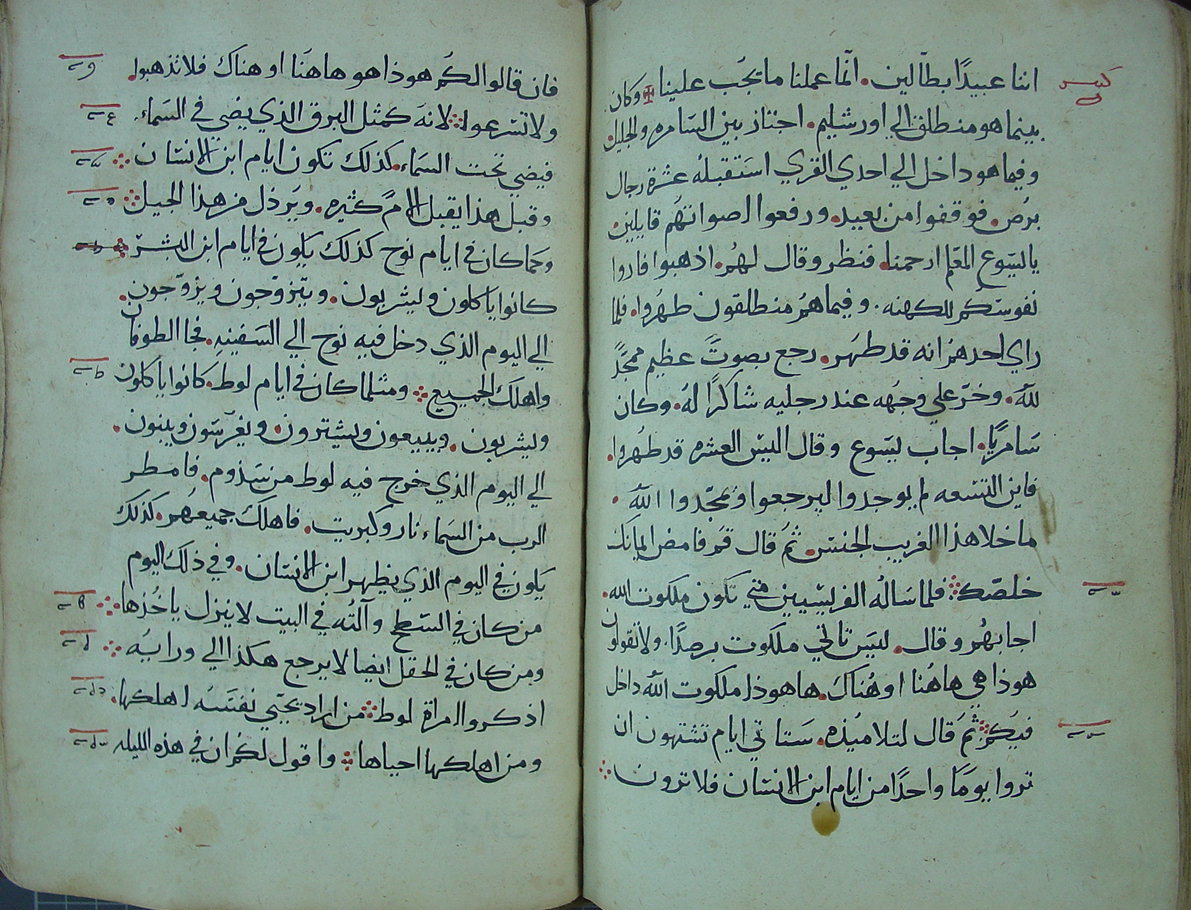 اننا عبيدًا بطالين. انما عملنا ما يجب علينا وكان
بينما هو منطلق الي اورشليم. اجتاز بين السامره والجليل
وفيما هو داخل الي احدي القري استقبله عشرة رجال
برص. فوقفوا من بعيد. ورفعوا اصواتهم قايلين.
يا يسوع المعلم ارحمنا. فنظر وقال لهم. اذهبوا فاروا
نفوسكم للكهنه. وفيما هم منطلقون طهروا. فلما
راي احدهم انه قد طهر. رجع بصوت عظيم ممجدًا
لله. وخر علي وجهه عند رجليه شاكرًا له. وكان
سامريًا. اجاب يسوع وقال اليس العشره قد طهروا.
فاين التسعه لم يوجدوا ليرجعوا ويمجدوا الله.
ما خلا هذا الغريب الجنس. ثم قال قم فامض ايمانك
خلصك فلما ساله الفريسيين متي تكون ملكوت الله.
اجابهم وقال. ليس تاتي ملكوت برصدًا. ولا تقولون
هوذا هي هاهنا او هناك. ها هوذا ملكوت الله داخل
فيكم ثم قال لتلاميذه. ستاتي ايام تشتهون ان
تروا يومًا واحدًا من ايام ابن الانسان فلا ترون
فان قالوا لكم هوذا هو هاهنا او هناك فلا تذهبوا
ولا تسرعوا لانه كمثل البرق الذي يضي في السماء.
فيضي تحت السماء. كذلك تكون ايام ابن الانسان
وقبل هذا يقبل الامً كثيره. ويرذل من هذا الجيل
وكما كان في ايام نوح كذلك يكون في ايام ابن البشر
كانوا ياكلون ويشربون. ويتزوجون ويزوجون.
الي اليوم الذي دخل فيه نوح الي السفينه. فجا الطوفان
واهلك الجميع ومثلما كان في ايام لوط. كانوا ياكلون
ويشربون. ويبيعون ويشترون. ويغرسون ويبنون.
الي اليوم الذي خرج فيه لوط من سذوم. فامطر
الرب من السماء نار وكبريت. فاهلك جميعهم. كذلك
يكون في اليوم الذي يظهر ابن الانسان. وفي ذلك اليوم
من كان في السطح وآلته في البيت لا ينزل ياخذها
ومن كان في الحقل ايضا لا يرجع هكذا الي ورايه
اذكروا امراة لوط من اراد يحيي نفسه اهلكها.
ومن اهلكها احياها واقول لكم ان في هذه الليله